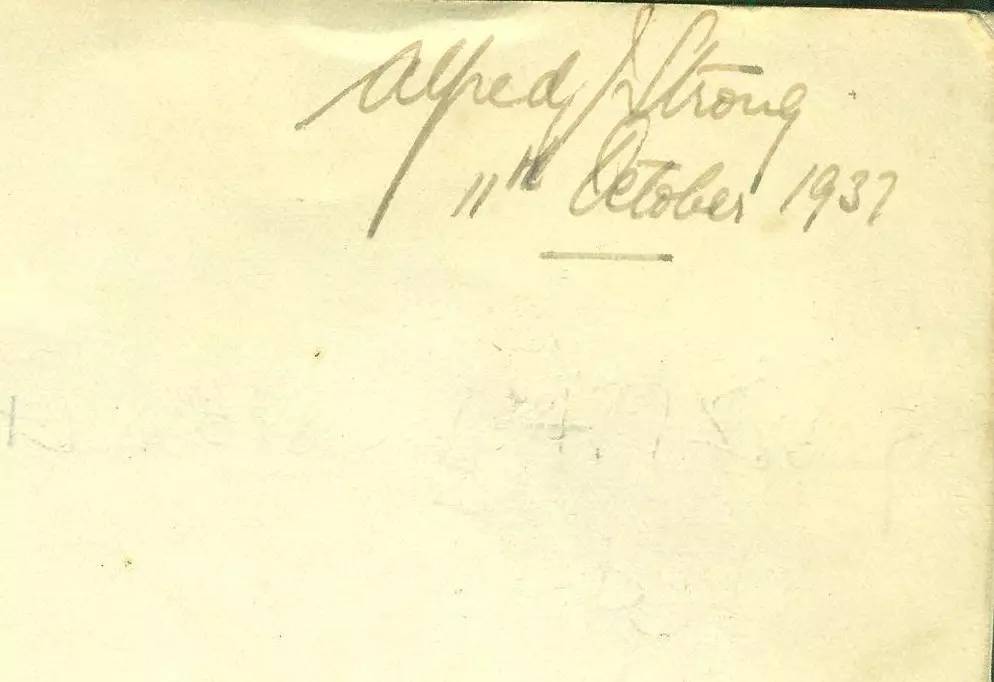 Alfred J Strong
11th October 1937